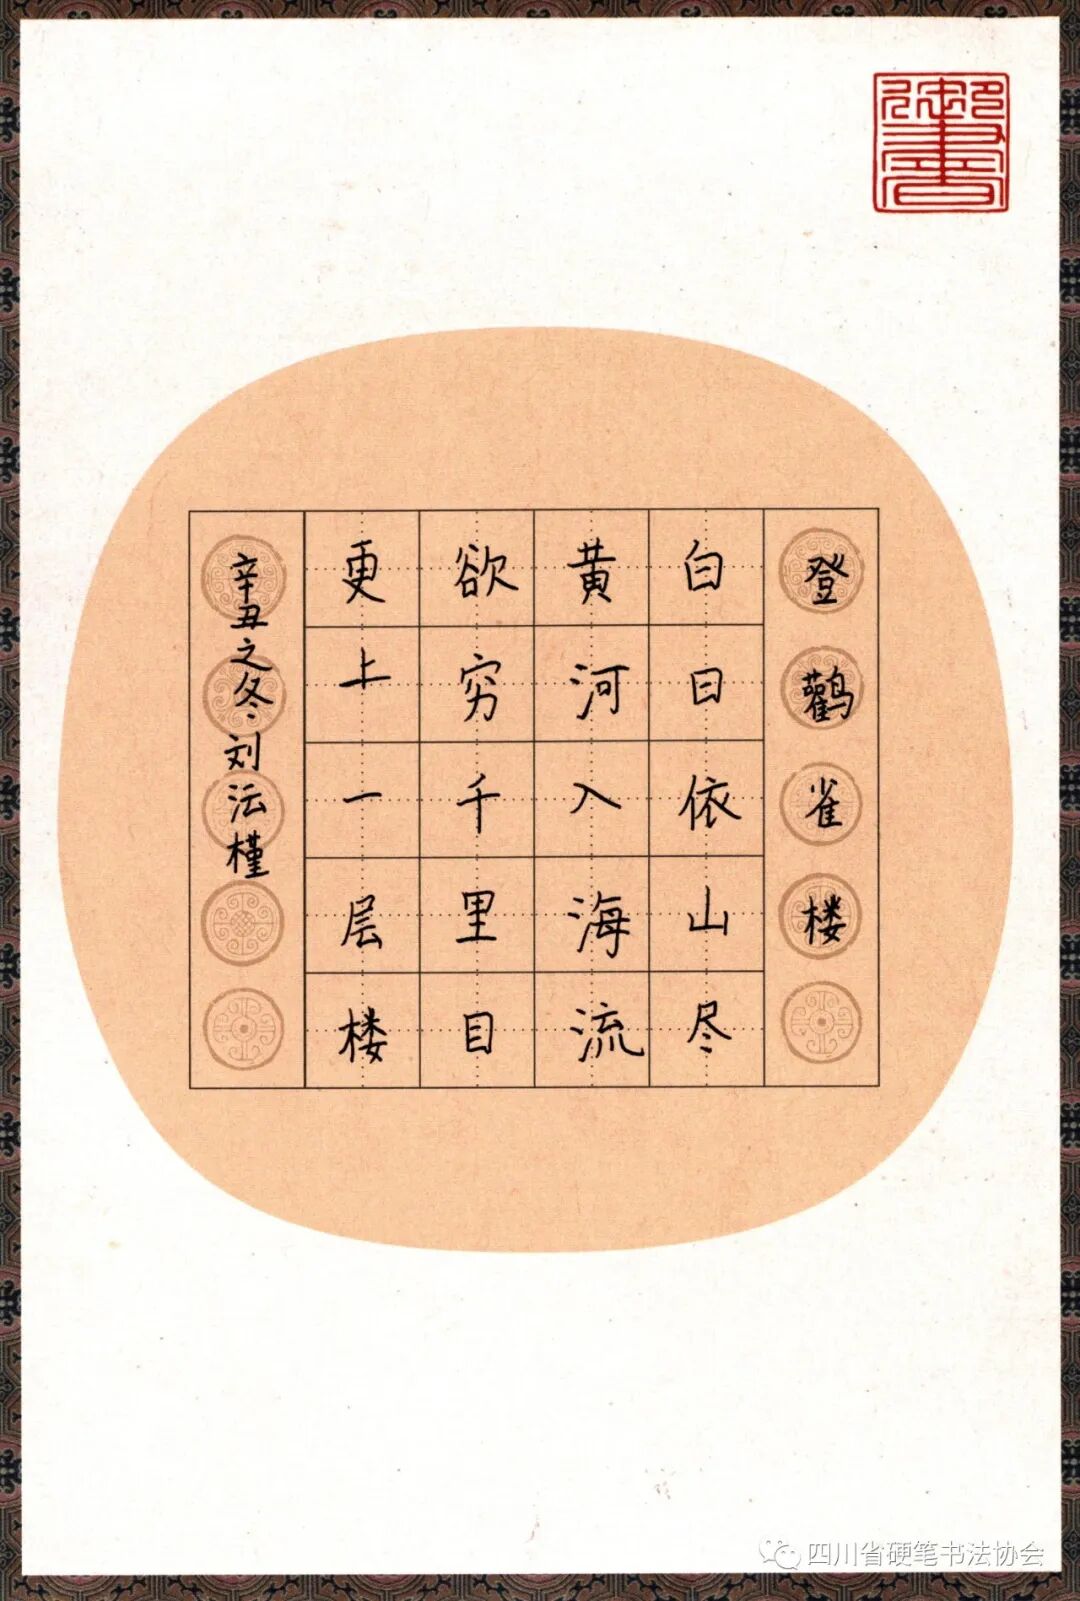 登鹳雀楼
白日依山尽
黄河入海流
欲穷千里目
更上一层楼
辛丑之冬刘沄槿
御书
四川省硬笔书法协会